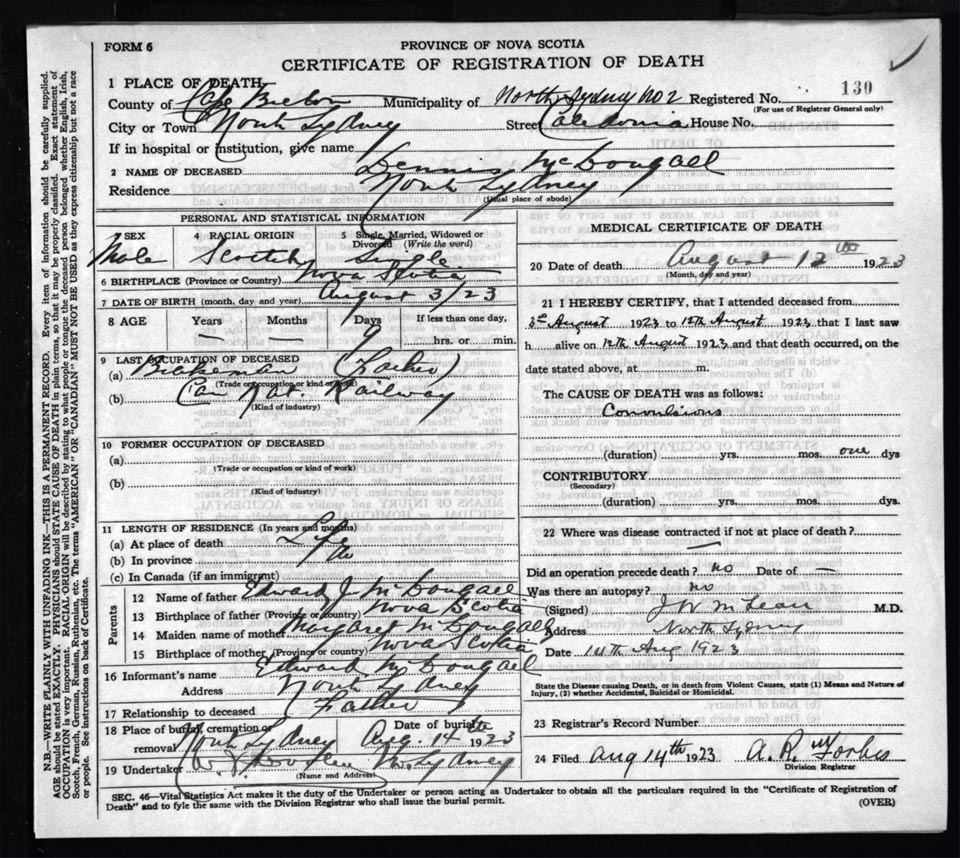 FORM 6
PROVINCE OF NOVA SCOTIA
CERTIFICATE OF REGISTRATION OF DEATH
130
1 PLACE OF DEATH
County of Cape Breton Municipality of North Sydney No 2 Registered No.
(For use of Registrar General only)
City or Town North Sydney Street Caledonia House No.
If in hospital or institution, give name
2 NAME OF DECEASED Dennis McDougall
Residence North Sydney
(Usual place of abode)
PERSONAL AND STATISTICAL INFORMATION
3 SEX 4 RACIAL ORIGIN 5 Single, Married, Widowed or Divorced (Write the word)
Male Scottish Single
6 BIRTHPLACE (Province or Country) Nova Scotia
7 DATE OF BIRTH (month, day and year) August 3/23
8 AGE Years Months Days If less than one day,
9 hrs. or min.
9 LAST OCCUPATION OF DECEASED
(a) Brakeman (Father)
(Trade or occupation or kind of work)
(b) Can Nat. Railway
(Kind of industry)
10 FORMER OCCUPATION OF DECEASED
(a)
(Trade or occupation or kind of work)
(b)
(Kind of industry)
11 LENGTH OF RESIDENCE (In years and months)
(a) At place of death Life
(b) In province Do
(c) In Canada (if an immigrant)
Parents
12 Name of father Edward J. McDougall
13 Birthplace of father (Province or country) Nova Scotia
14 Maiden name of mother Margaret McDougall
15 Birthplace of mother (Province or country) Nova Scotia
16 Informant's name Edward McDougall
Address North Sydney
17 Relationship to deceased Father
18 Place of burial, cremation or removal North Sydney Date of burial Aug. 14th 1923
19 Undertaker N. Sydney
(Name and Address)
MEDICAL CERTIFICATE OF DEATH
20 Date of death August 12th 1923
(Month, day and year)
21 I HEREBY CERTIFY, that I attended deceased from
3rd August 1923 to 12th August 1923 that I last saw
h alive on 12th August 1923 and that death occurred, on the
date stated above, at m.
The CAUSE OF DEATH was as follows:
Convulsions
(duration) yrs. mos. one dys
CONTRIBUTORY
(Secondary)
(duration) yrs. mos. dys.
22 Where was disease contracted if not at place of death?
Did an operation precede death? no Date of —
Was there an autopsy? no
(Signed) J W McLean M.D.
Address North Sydney
Date 14th Aug 1923
State the Disease causing Death, or in death from Violent Causes, state (1) Means and Nature of
Injury, (2) whether Accidental, Suicidal or Homicidal.
23 Registrar's Record Number
24 Filed Aug 14th 1923 A. R. Forbes
Division Registrar
SEC. 46—Vital Statistics Act makes it the duty of the Undertaker or person acting as Undertaker to obtain all the particulars required in the "Certificate of Registration of
Death" and to fyle the same with the Division Registrar who shall issue the burial permit.
(OVER)
N.B.—WRITE PLAINLY WITH UNFADING INK—THIS IS A PERMANENT RECORD. Every item of information should be carefully supplied.
AGE should be stated EXACTLY. PHYSICIANS should STATE CAUSE OF DEATH in plain terms, so that it may be properly classified. Exact statement of
OCCUPATION is very important. RACIAL ORIGIN will be described by stating to what people or tongue the deceased person belonged whether English, Irish,
Scotch, French, German, Russian, Ruthenian, etc. The terms "AMERICAN" OR "CANADIAN" MUST NOT BE USED as they express citizenship but not a race
or people. See instructions on back of Certificate.